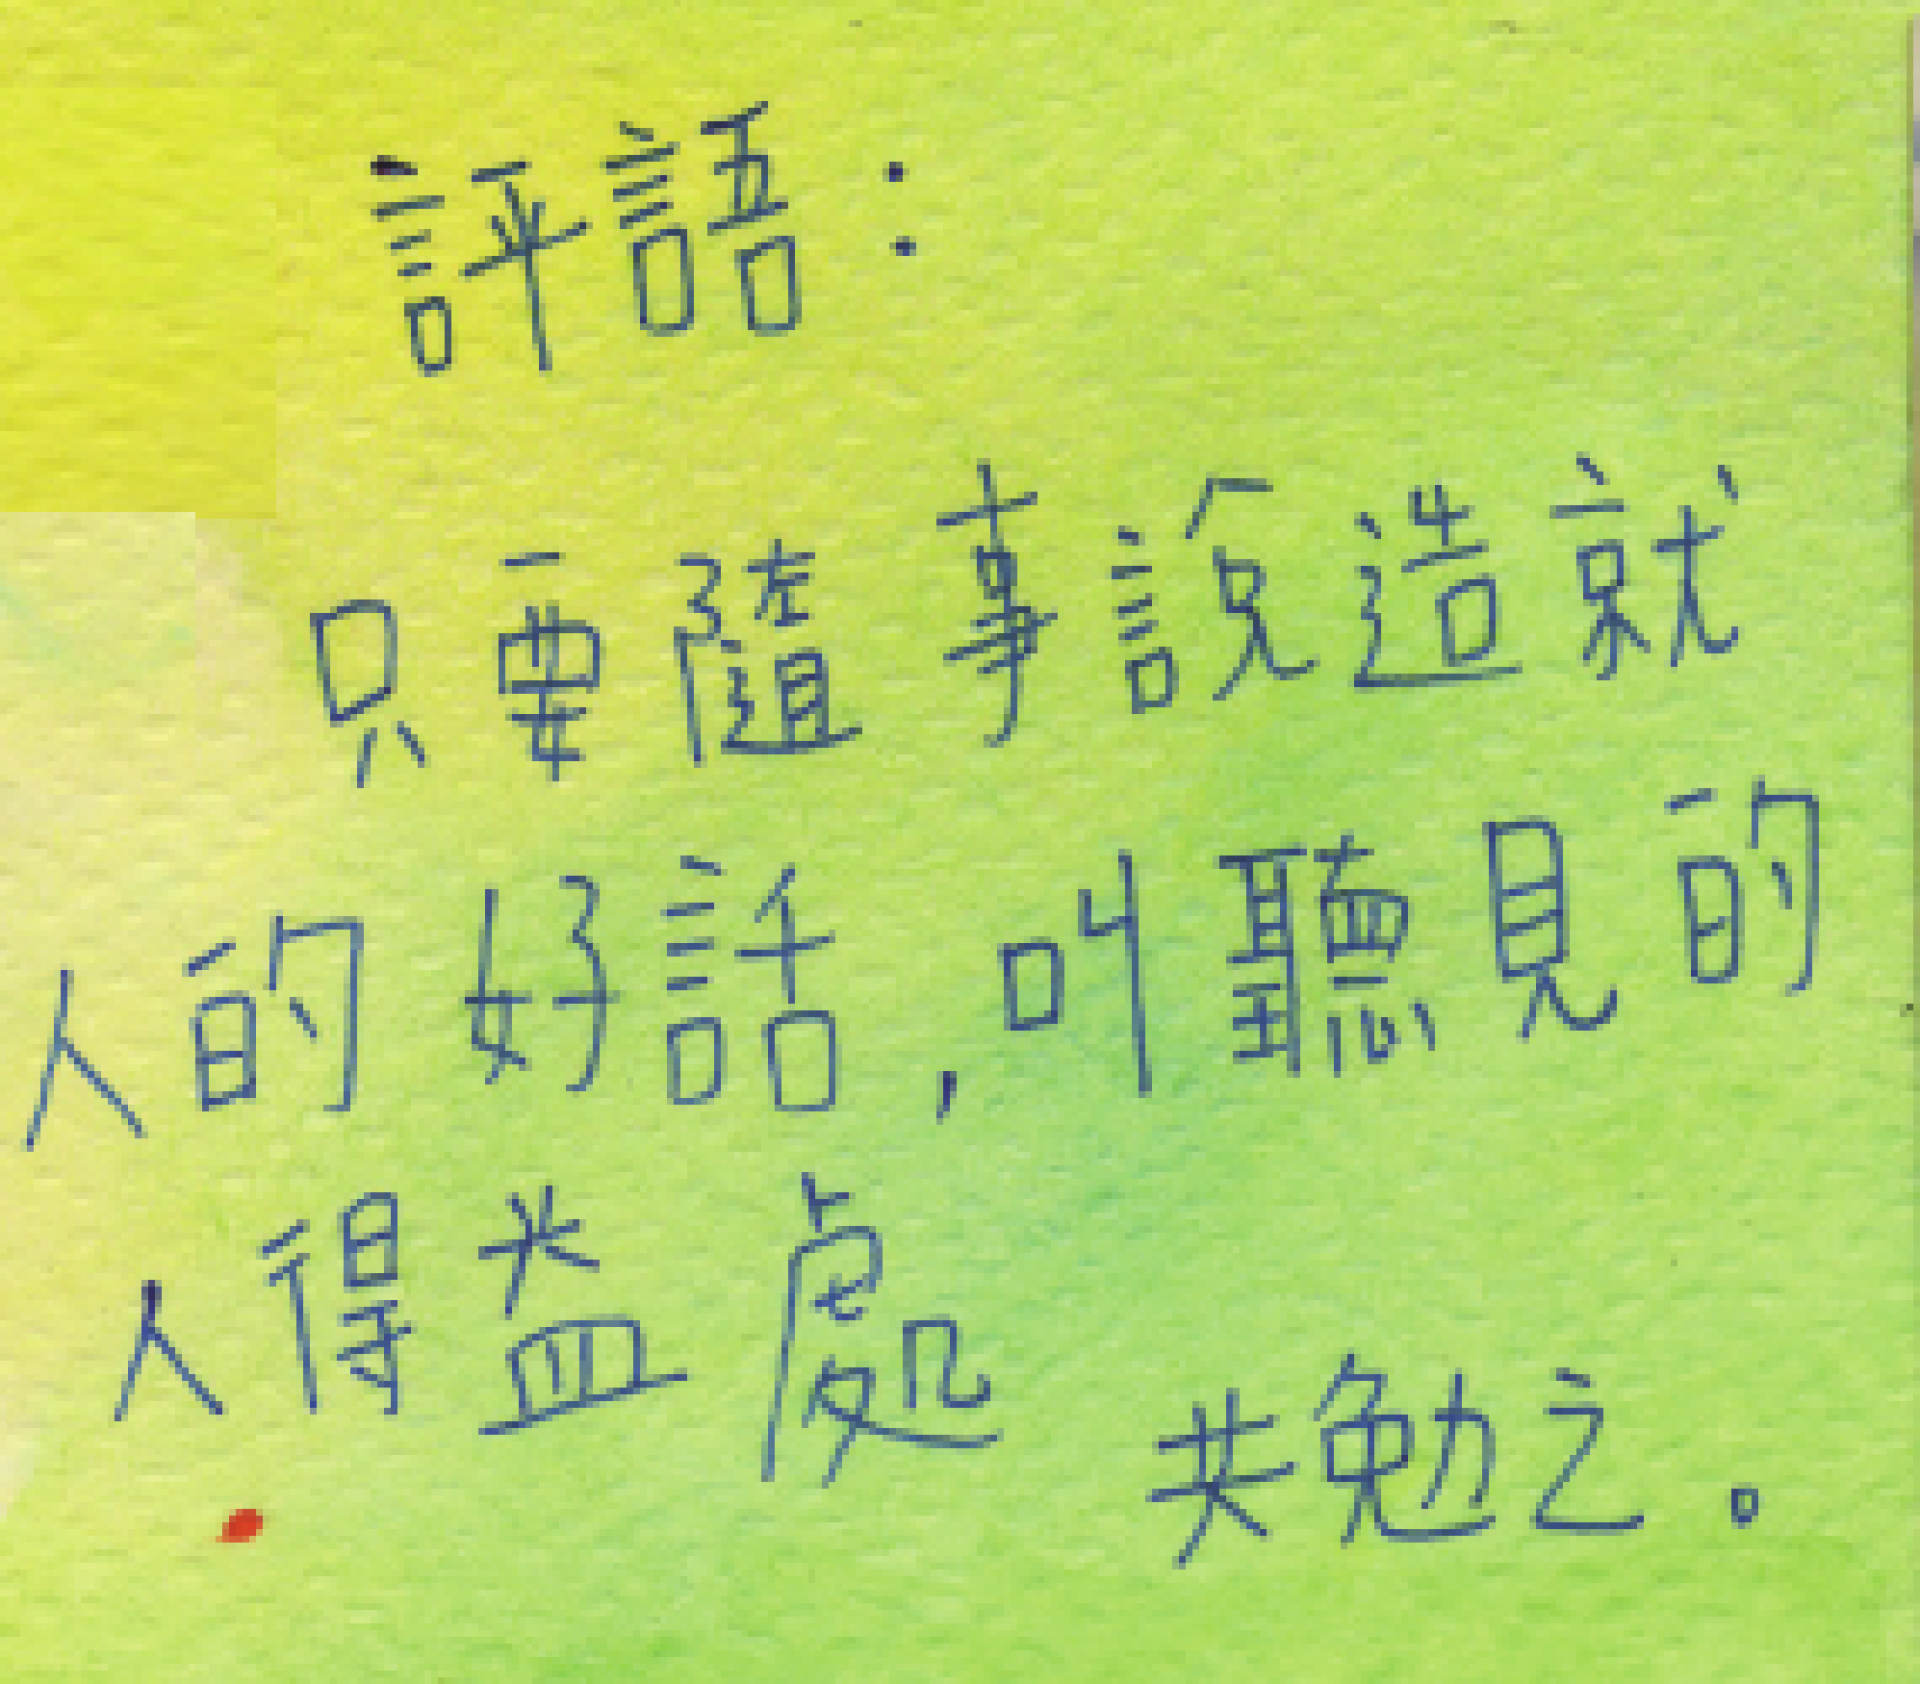 評語：
只要隨事說造就
人的好話，叫聽見的
人得益處
共勉之。